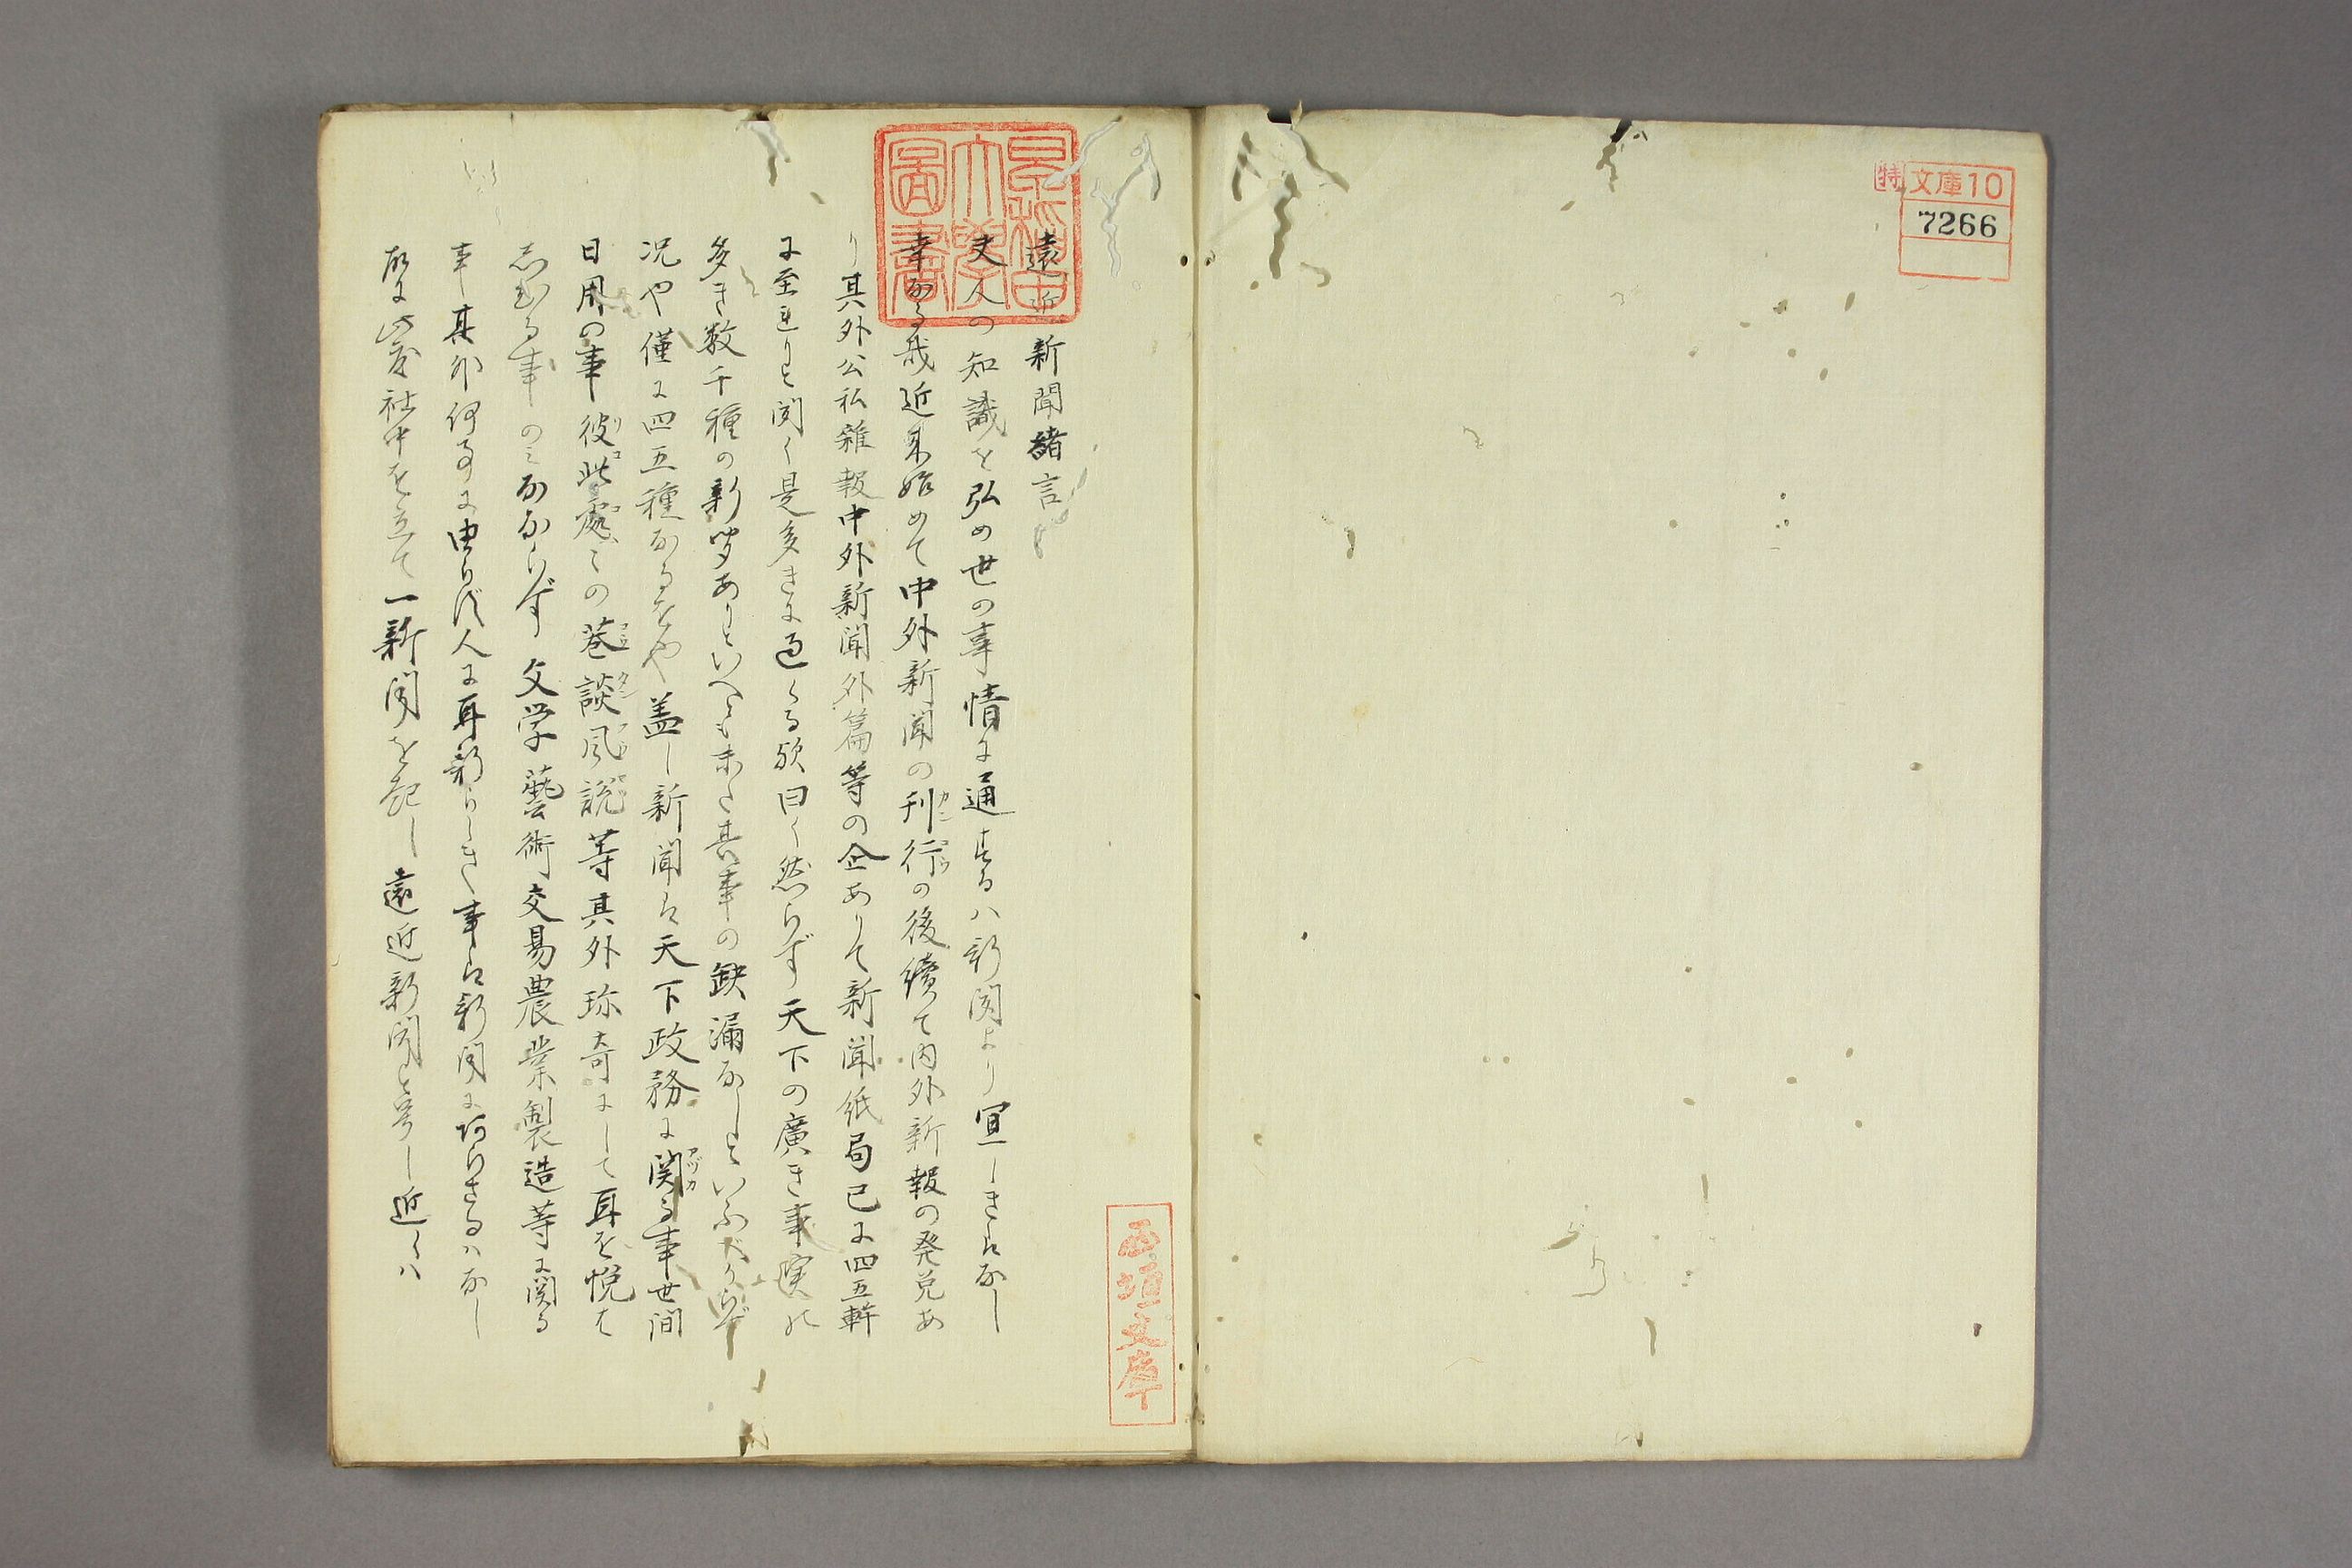 特 文庫10
7266
早稲田大学図書
西垣文庫
遠近新聞緒言
夫人の知識を弘め世の事情に通するハ新聞より宜しきはなし
幸なる哉近来始めて中外新聞の刊行の後続て内外新報の発兌あ
り其外公私雑報中外新聞外篇等の企ありて新聞紙局已に四五軒
に至れりと聞く是多きに過くる歟曰く然らず天下の廣き事実の
多き数千種の新聞ありといへとも未た其事の缺漏なしといふべからず
况や僅に四五種なるをや盖し新聞は天下政務に関る事世間
日用の事彼此処々の巷談風説等其外珍奇にして耳を悦は
しむる事のみなならず文学藝術交易農業製造等に関る
事其外何事に由らず人に耳新らしき事は新聞にあらさるハなし
故に此度社中を立て一新聞を起し遠近新聞と号し近くハ